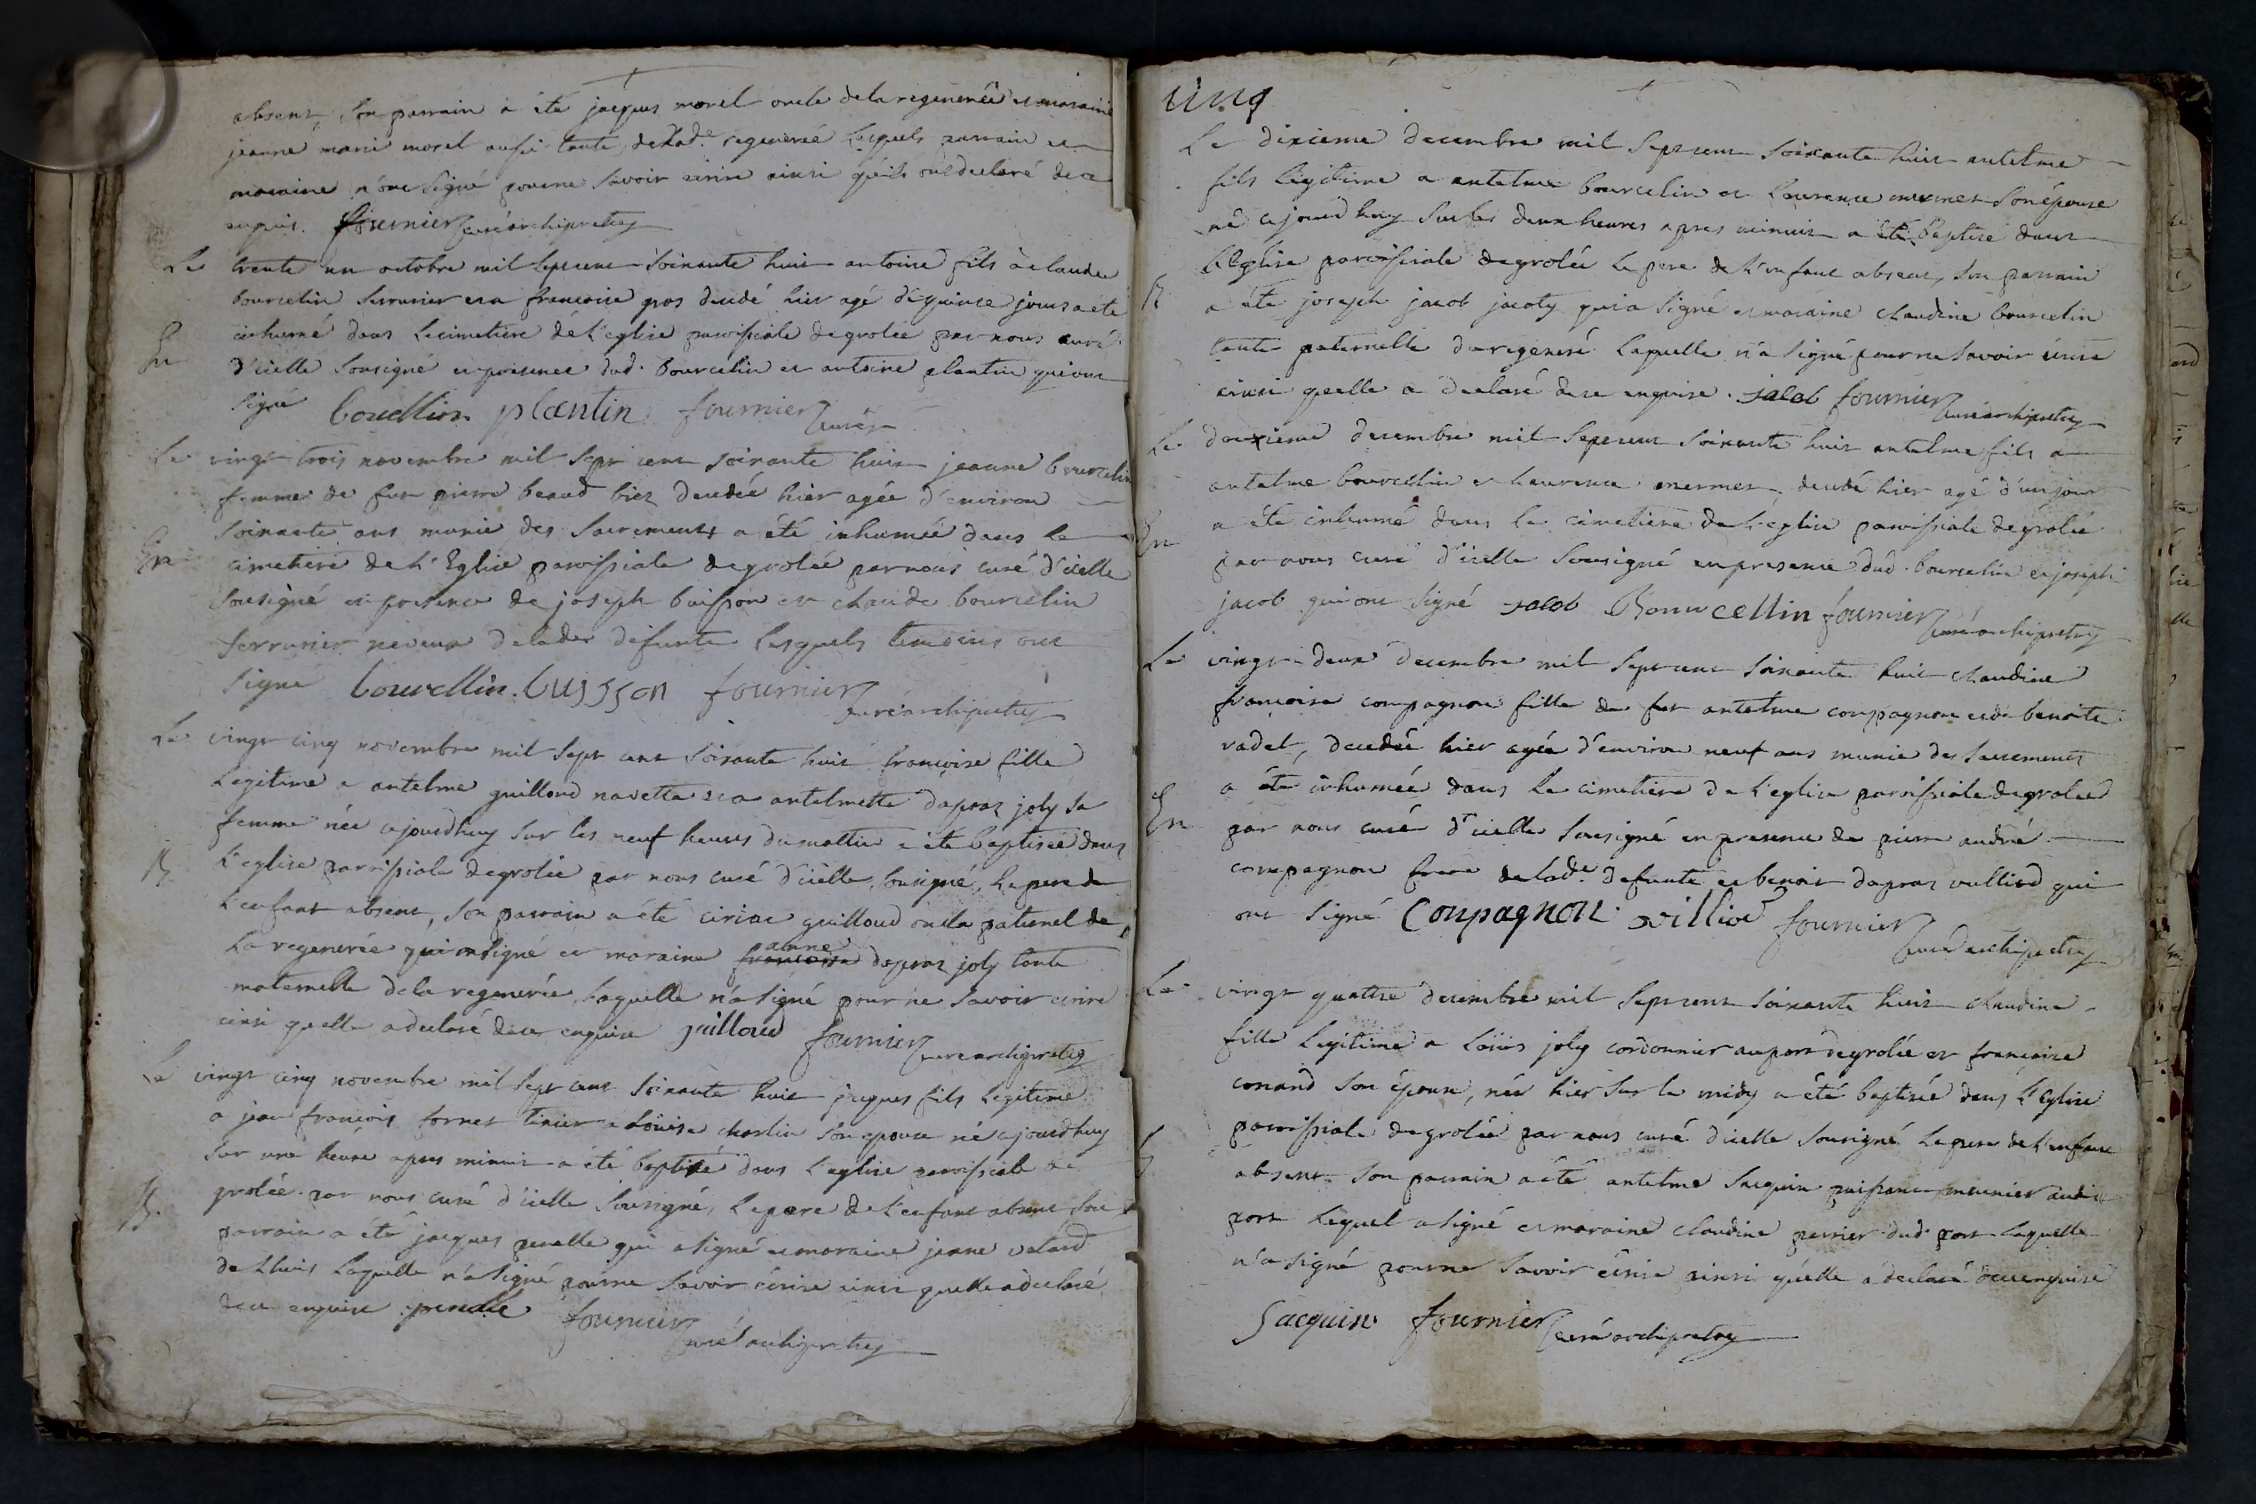 absent, son parrain a été jacques morel oncle de la regenerée et maraine
jeanne marie morel aussi tante de lad.e regenerée lesquels parrain et
maraine n'ont signé pour ne savoir ecrire ainsi qu'ils ont declaré de ce
enquis. fournier curé archipretre
Le trente un octobre mil sept cent soixante huit antoine fils à claude
bourcelin serrurier et a francoise gros decedé hier agé de quinze jours a été
inhumé dans le cimetiere de l'eglise paroissiale de grolée par nous curé
En d'icelle sousigné en presence dud. bourcelin et antoine plantin qui ont
signé bourcellin plantin fournier curé
Le vingt trois novembre mil sept cent soixante huit jeanne bourcelin
femme de feu pierre beaud biez decedée hier agée d'environ
soixante ans munie des sacrements a été inhumée dans le
En cimetiere de l'Eglise paroissiale de grolée par nous curé d'icelle
sousigné en presence de joseph buisson et claude bourcelin
serrurier neveux de lade defunte lesquels temoins ont
signé bourcellin buisson fournier curé archipretre
Le vingt cinq novembre mil sept cent soixante huit francoise fille
legitime a antelme guilloud navette et a antelmette dapraz joly sa
femme née cejourdhuy sur les neuf heures du mattin a été baptisée dans
B l'eglise paroissiale de grolée par nous curé d'icelle sousigné, le pere de
l'enfant absent, son parrain a été ciriac guilloud oncle paternel de
la regenerée qui a signé et maraine francoise anne dapraz joly tante
maternelle de la regenerée laquelle n'a signé pour ne savoir ecrire
ainsi quelle a declaré de ce enquise guilloud fournier curé archipretre
Le vingt cinq novembre mil sept cent soixante huit jacques fils legitime
a jean francois et a loüise charlin son epouse né cejourdhuy
sur une heure apres minuit a été baptisé dans l'eglise paroissiale de
B. grolée par nous curé d'icelle sousigné, le pere de l'enfant absent son
parrain a été jacques penelle qui a signé et maraine jeane
de lhuis laquelle n'a signé pour ne savoir ecrire ainsi quelle a declaré
de ce enquise penelle fournier curé archipretre
cinq
Le dixieme decembre mil sept cent soixante huit antelme
fils légitime a antelme bourcelin et laurence mermet son épouse
né cejourd'huy sur les deux heures apres minuit a été baptisé dans
L'Eglise paroissiale de grolée le pere de l'enfant absent, son parrain
B a été joseph jacob jacoty qui a signé et maraine claudine bourcelin
tante paternelle du regeneré laquelle n'a signé pour ne savoir ecrire
ainsi quelle a declaré de ce enquise. jacob fournier curé archipretre
Le douzieme decembre mil sept cent soixante huit antelme fils a
antelme bourcellin et laurence mermet decedé hier agé d'un jour
En a été inhumé dans le cimetiere de l'église paroissiale de grolée
par nous curé d'icelle sousigné en presence dud. bourcelin et joseph
jacob qui ont signé jacob Bourrcellin fournier curé archipretre
Le vingt deux decembre mil sept cent soixante huit claudine
francoise compagnon fille de feu antelme compagnon et de benoite
radet, decedée hier agée d'environ neuf ans munie des sacrements
En a été inhumée dans le cimetiere de l'eglise paroissiale de grolée
par nous curé d'icelle sousigné en presence de pierre andré
compagnon frere de lad.e defunte et benoit dapraz vullied qui
ont signé Conpagnon villiod fournier curé archipretre
Le vingt quattre decembre mil sept cent soixante huit claudine
fille legitime a loüis joly cordonnier au port de grolée et francoise
conand son épouse, née hier sur le midy a été baptisée dans l'Eglise
B paroissiale de grolée par nous curé d'icelle sousigné le pere de l'enfant
absent son parrain a été antelme sacquin meunier audit
port lequel a signé et maraine claudine perrier dud. port laquelle
n'a signé pour ne savoir écrire ainsi qu'elle a declaré de ce enquise
Sacquin fournier curé archipretre